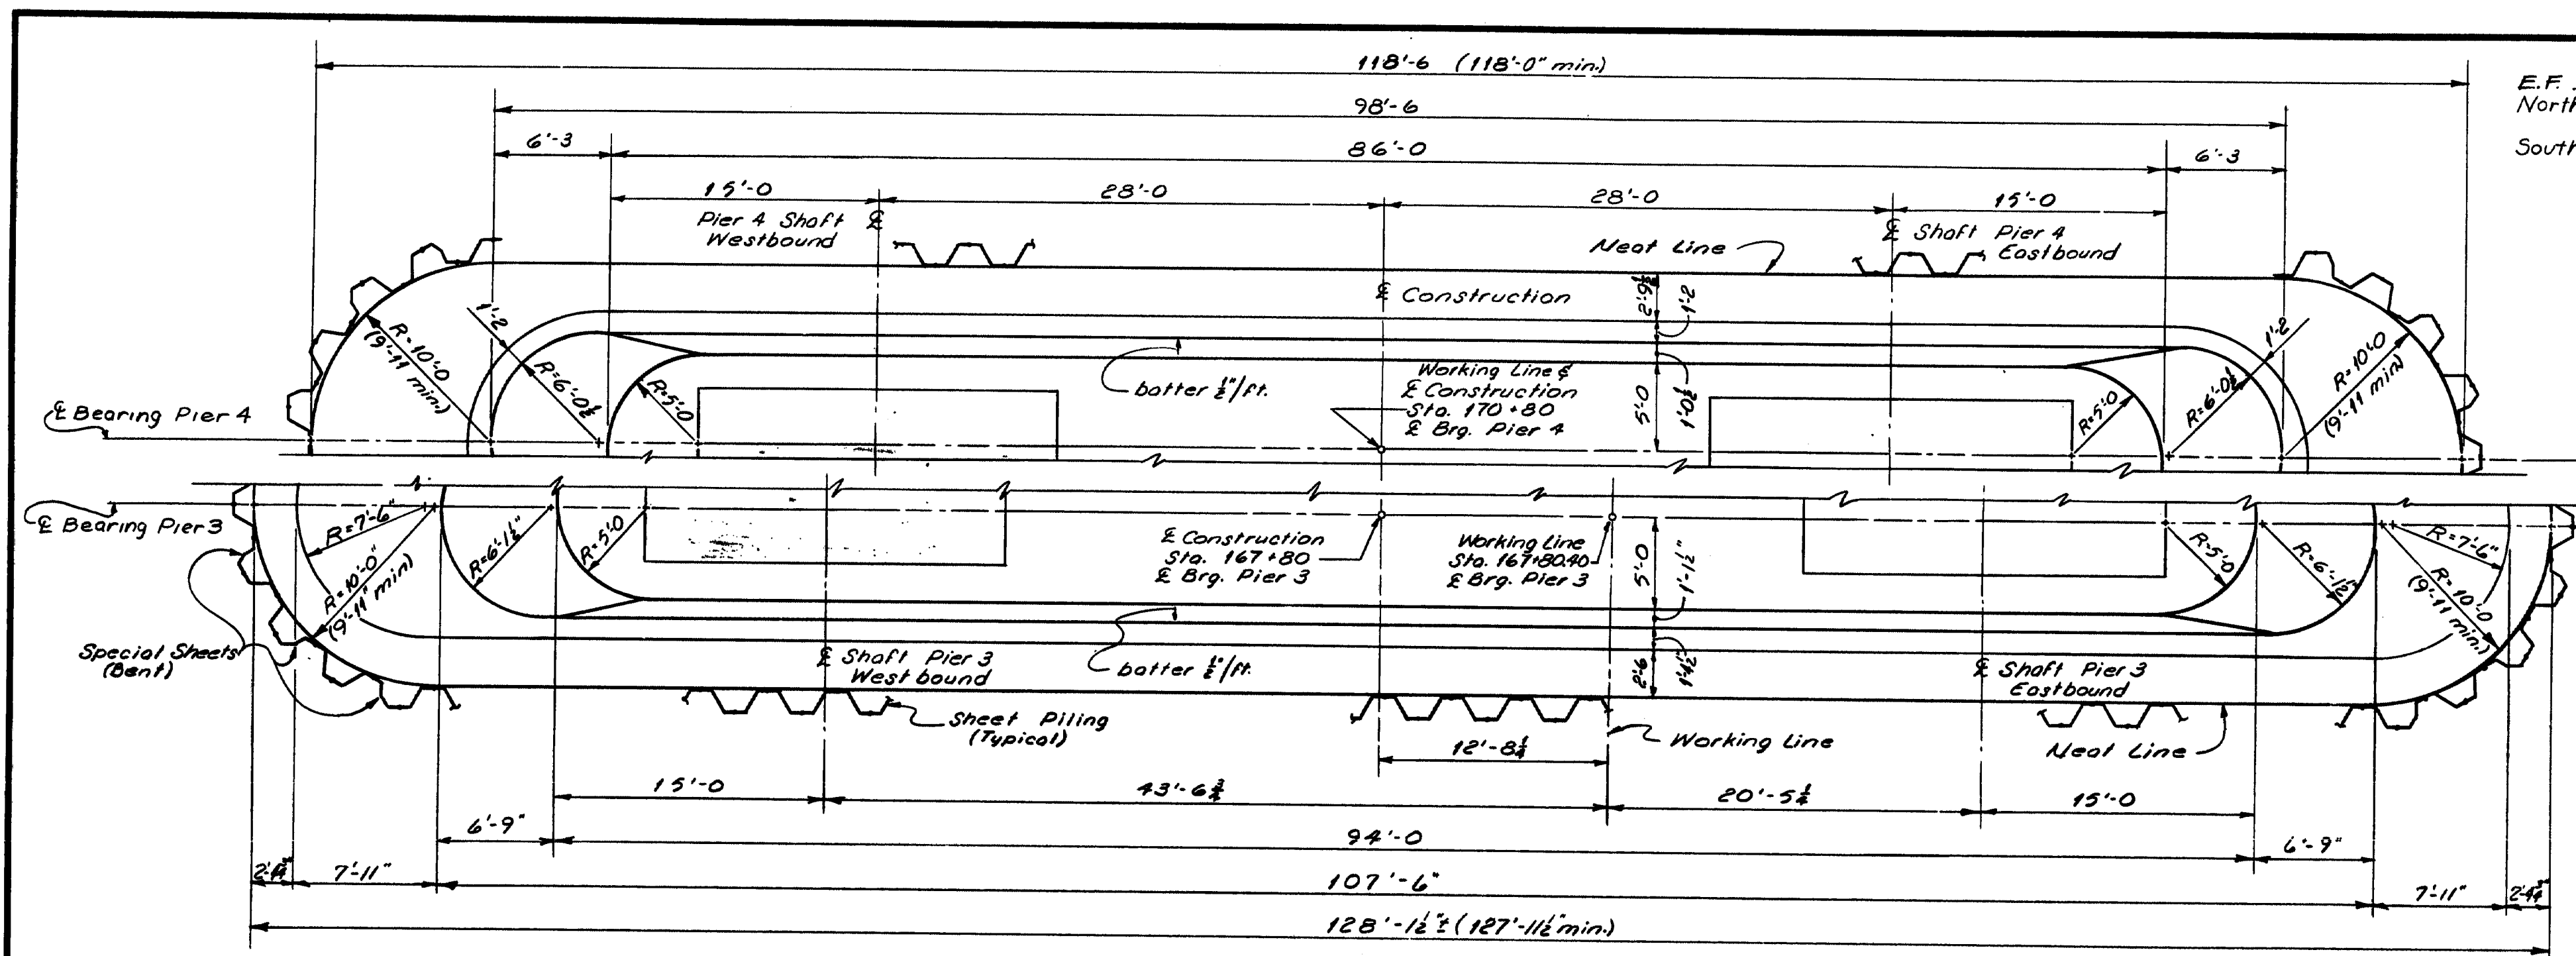 118'-6 (118'-0" min.)
E.F.
North
South
98'-6
6'-3
86'-0
6'-3
15'-0
28'-0
28'-0
15'-0
Pier 4 Shaft ℄
Westbound
℄ Shaft Pier 4
Eastbound
Neat Line
℄ Construction
2'-9½
1'-2
1'-2
1'-2
R=10'-0
(9'-11 min.)
R=6'-0½
R=5'-0
batter ½"/ft.
Working Line &
℄ Construction
Sta. 170+80
℄ Brg. Pier 4
5'-0
1'-0½
R=5'-0
R=6'-0½
R=10'-0
(9'-11 min)
℄ Bearing Pier 4
℄ Bearing Pier 3
R=7'-6"
R=10'-0"
(9'-11" min)
R=6'-1½"
R=5'-0
℄ Construction
Sta. 167+80
℄ Brg. Pier 3
Working Line
Sta. 167+80.40
℄ Brg. Pier 3
5'-0
1'-1½"
R=5'-0
R=6'-1½"
R=7'-6"
R=10'-0
(9'-11 min.)
Special Sheets
(Bent)
℄ Shaft Pier 3
Westbound
batter ½"/ft.
2'-6
1'-4½"
℄ Shaft Pier 3
Eastbound
Sheet Piling
(Typical)
12'-8¼
Working Line
Neat Line
15'-0
43'-6¾
20'-5¼
15'-0
6'-9"
94'-0
6'-9"
7'-11"
107'-6"
7'-11"
128'-1½"± (127'-11½" min.)